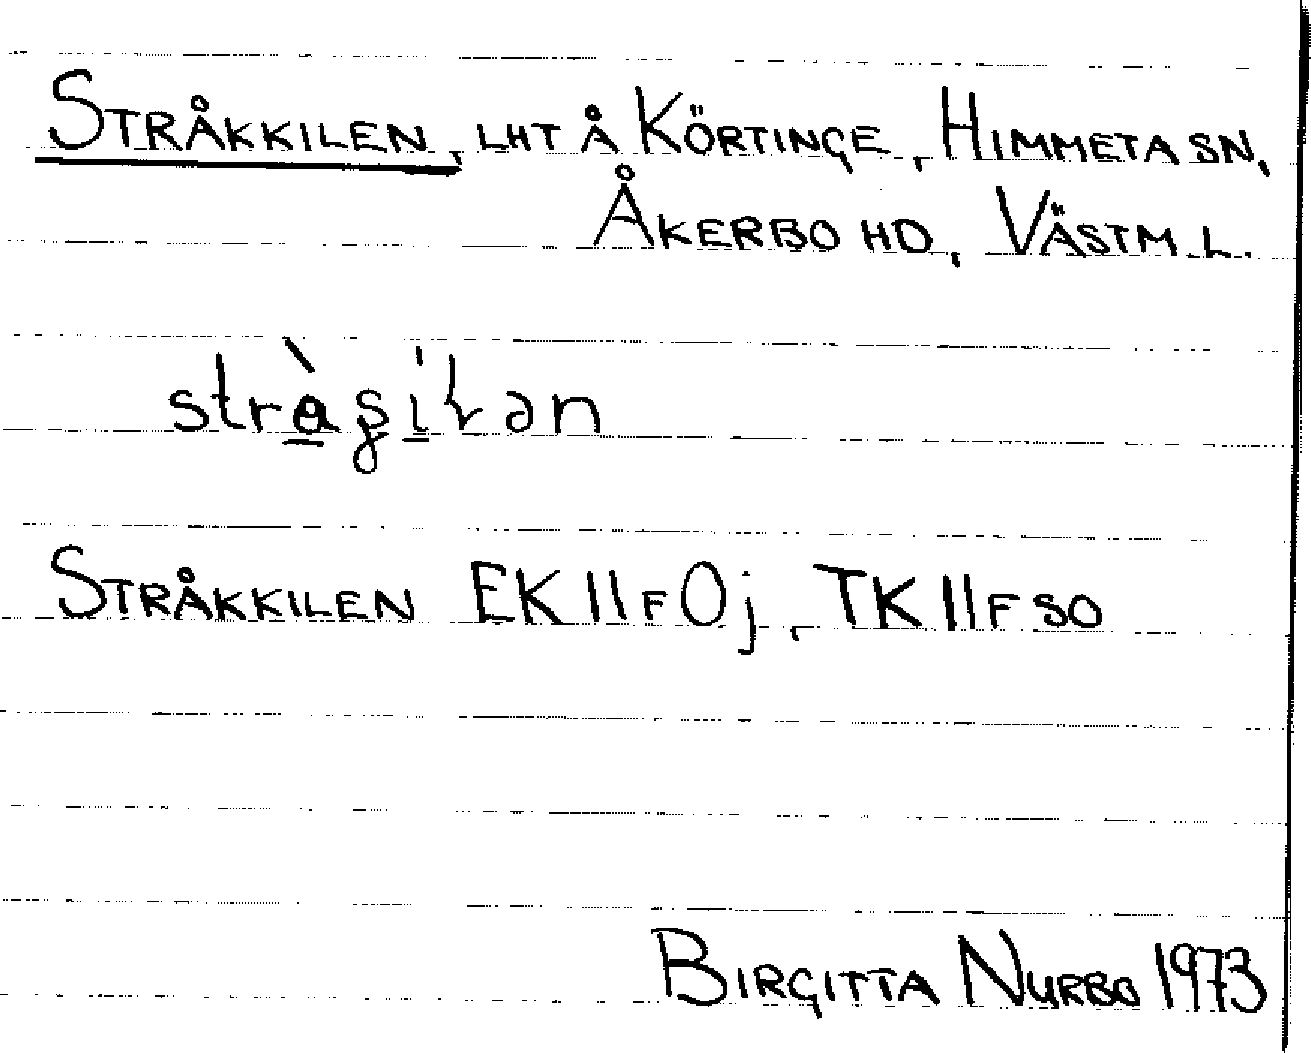 STRÅKKILEN, LHT Å KÖRTINGE, HIMMETA SN,
ÅKERBO HD, VÄSTM.L.
STRÅKKILEN EK 11F0j, TK 11F SO
BIRGITTA NURBO 1973